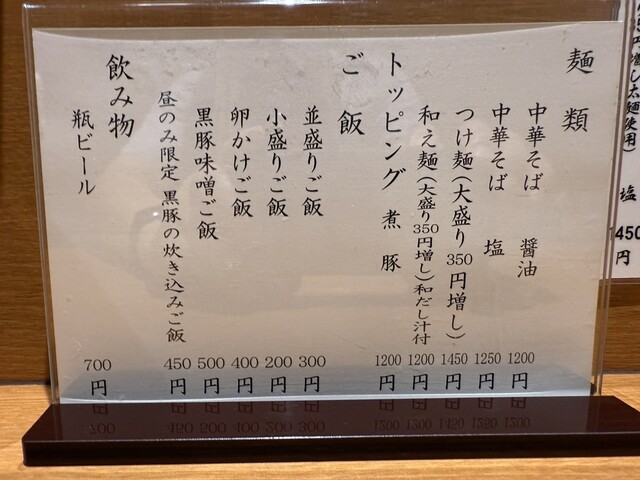 麺類
中華そば 醤油 1200円
中華そば 塩 1250円
つけ麺(大盛り350円増し) 1450円
和え麺(大盛り350円増し)和だし汁付 1200円
トッピング 煮豚 1200円
ご飯
並盛りご飯 300円
小盛りご飯 200円
卵かけご飯 400円
黒豚味噌ご飯 500円
昼のみ限定 黒豚の炊き込みご飯 450円
飲み物
瓶ビール 700円
円増し太麺使用)
塩 1450円